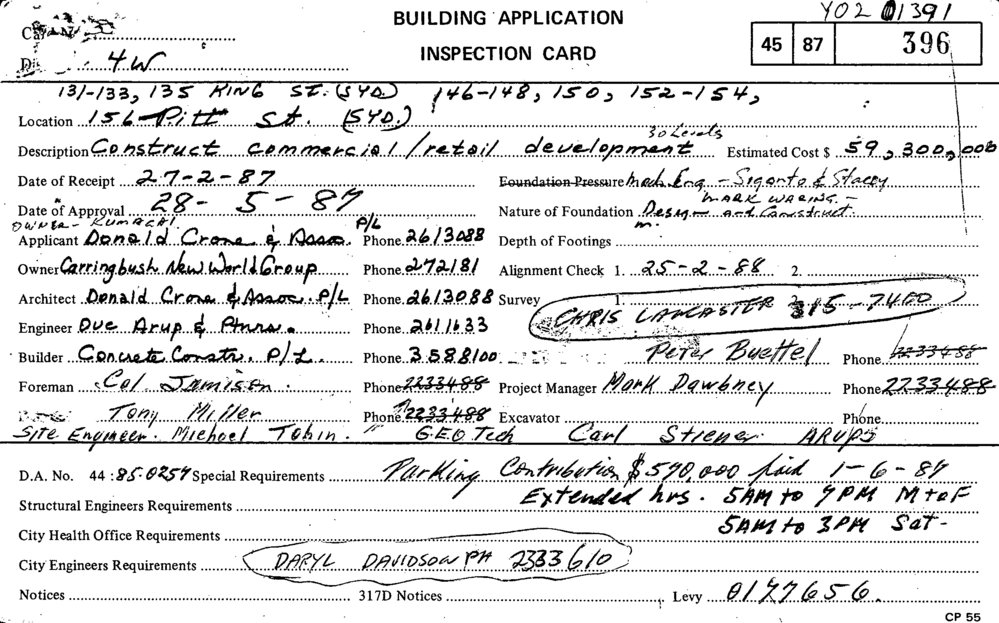 BUILDING APPLICATION
INSPECTION CARD
YO2 01391
45 87 396
4W
131-133, 135 KING ST. (SYD.) 146-148, 150, 152-154,
Location 156 Pitt St. (SYD.)
30 Levels
Description Construct commercial / retail development Estimated Cost $ 59,300,000
Date of Receipt 27-2-87 Foundation Pressure Mech Eng - Siganto & Stacey
MARK WARING -
Date of Approval 28-5-87 Nature of Foundation Design and Construct
OWNER - KUMAGAI P/L
Applicant Donald Crone & Assoc. Phone 2613088 Depth of Footings
Owner Carringbush New World Group Phone 272181 Alignment Check 1. 25-2-88 2.
Architect Donald Crone & Assoc. P/L Phone 2613088 Survey 1.
CHRIS LANCASTER 315-7400
Engineer Ove Arup & Ptnrs. Phone 2611633
Builder Concrete Constr. P/L. Phone 3588100 Peter Buettel Phone 2233488
Foreman Col Jamison Phone 2233488 Project Manager Mark Dawbney Phone 2233488
Tony Miller Phone 2233488 Excavator Phone
Site Engineer. Michael Tobin. " G.E.O Tech Carl Stiener ARUPS
D.A. No. 44:85.0257 Special Requirements Parking Contribution $570,000 paid 1-6-87
Structural Engineers Requirements Extended hrs. 5AM to 7PM M to F
5AM to 3PM Sat-
City Health Office Requirements
City Engineers Requirements DARYL DAVIDSON PH 2333610
Notices 317D Notices Levy 0177656.
CP 55